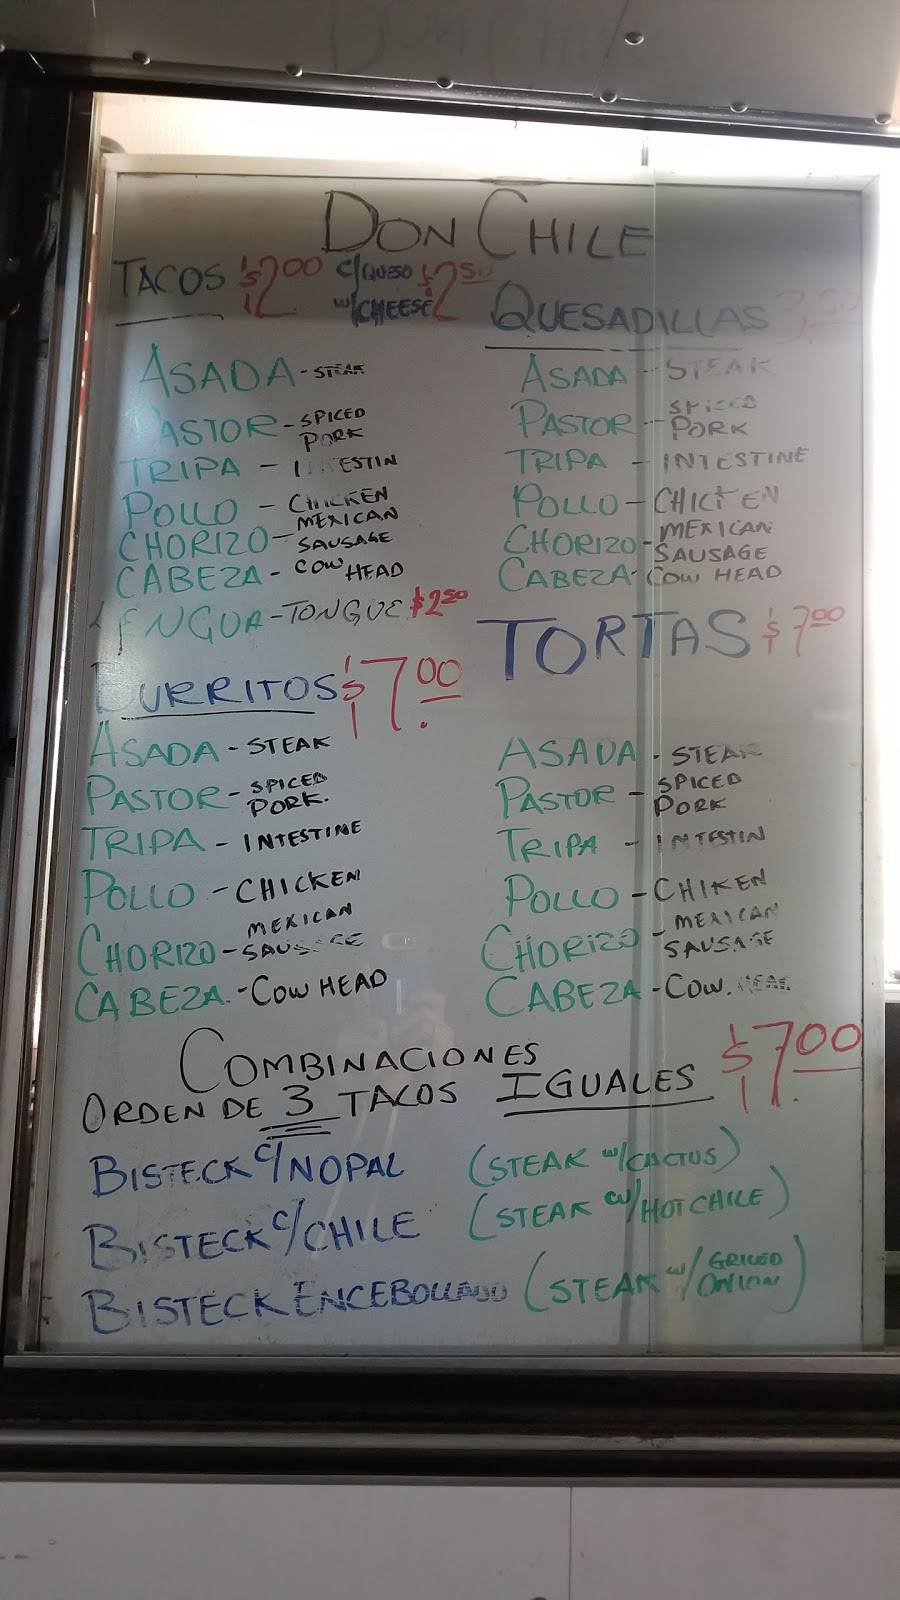 DON CHILE
TACOS $2.00 C/QUESO $2.50
W/CHEESE
ASADA - STEAK
PASTOR - SPICED PORK
TRIPA - INTESTIN
POLLO - CHICKEN
CHORIZO - MEXICAN SAUSAGE
CABEZA - COW HEAD
LENGUA - TONGUE $2.50
QUESADILLAS
ASADA - STEAK
PASTOR - SPICED PORK
TRIPA - INTESTINE
POLLO - CHICKEN
CHORIZO - MEXICAN SAUSAGE
CABEZA - COW HEAD
BURRITOS $7.00
ASADA - STEAK
PASTOR - SPICED PORK.
TRIPA - INTESTINE
POLLO - CHICKEN
CHORIZO - MEXICAN SAUSAGE
CABEZA. - COW HEAD
TORTAS $7.00
ASADA - STEAK
PASTOR - SPICED PORK
TRIPA - INTESTIN
POLLO - CHIKEN
CHORIZO - MEXICAN SAUSAGE
CABEZA - COW. HEAD
COMBINACIONES
ORDEN DE 3 TACOS IGUALES $7.00
BISTECK C/NOPAL (STEAK W/CACTUS)
BISTECK C/CHILE (STEAK W/HOT CHILE)
BISTECK ENCEBOLLADO (STEAK W/GRILED ONION)